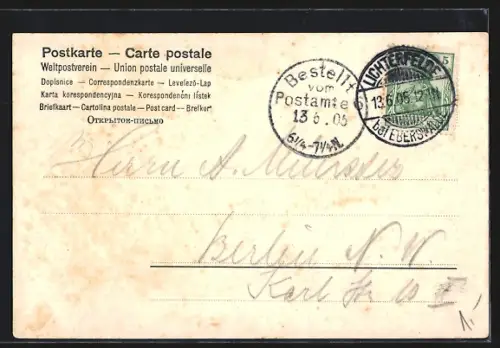 Postkarte — Carte postale
Weltpostverein — Union postale universelle
Dopisnice — Correspondenzkarte — Levelező-Lap
Karta korespondencyjna — Korespondenční lístek
Briefkaart — Cartolina postale — Post card — Brefkort
Открытое письмо
Bestellt
vom
Postamte 6
13 6. 05
6¼-7¼N.
LICHTERFELDE
13.6.05. 12-1N.
bei EBERSWALDE
5
Herrn A.
Berlin N. W.
Karl Str 10 I
1.-